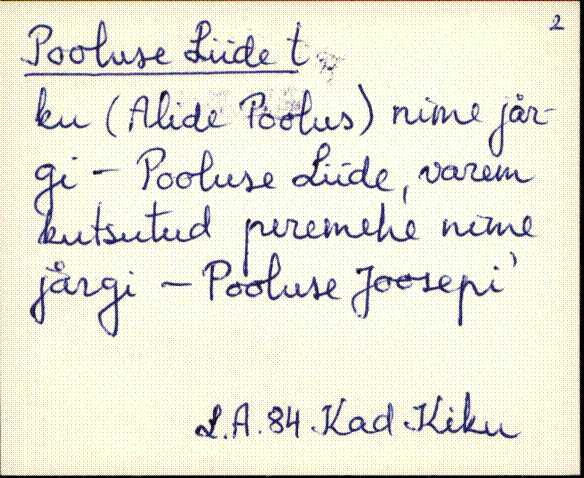 2
Pooluse Liide t
ku (Alide Poolus) nime jär-
gi - Pooluse Liide, varem
kutsutud peremehe nime
järgi - Pooluse Joosepi'
L.A. 84 Kad Kiku